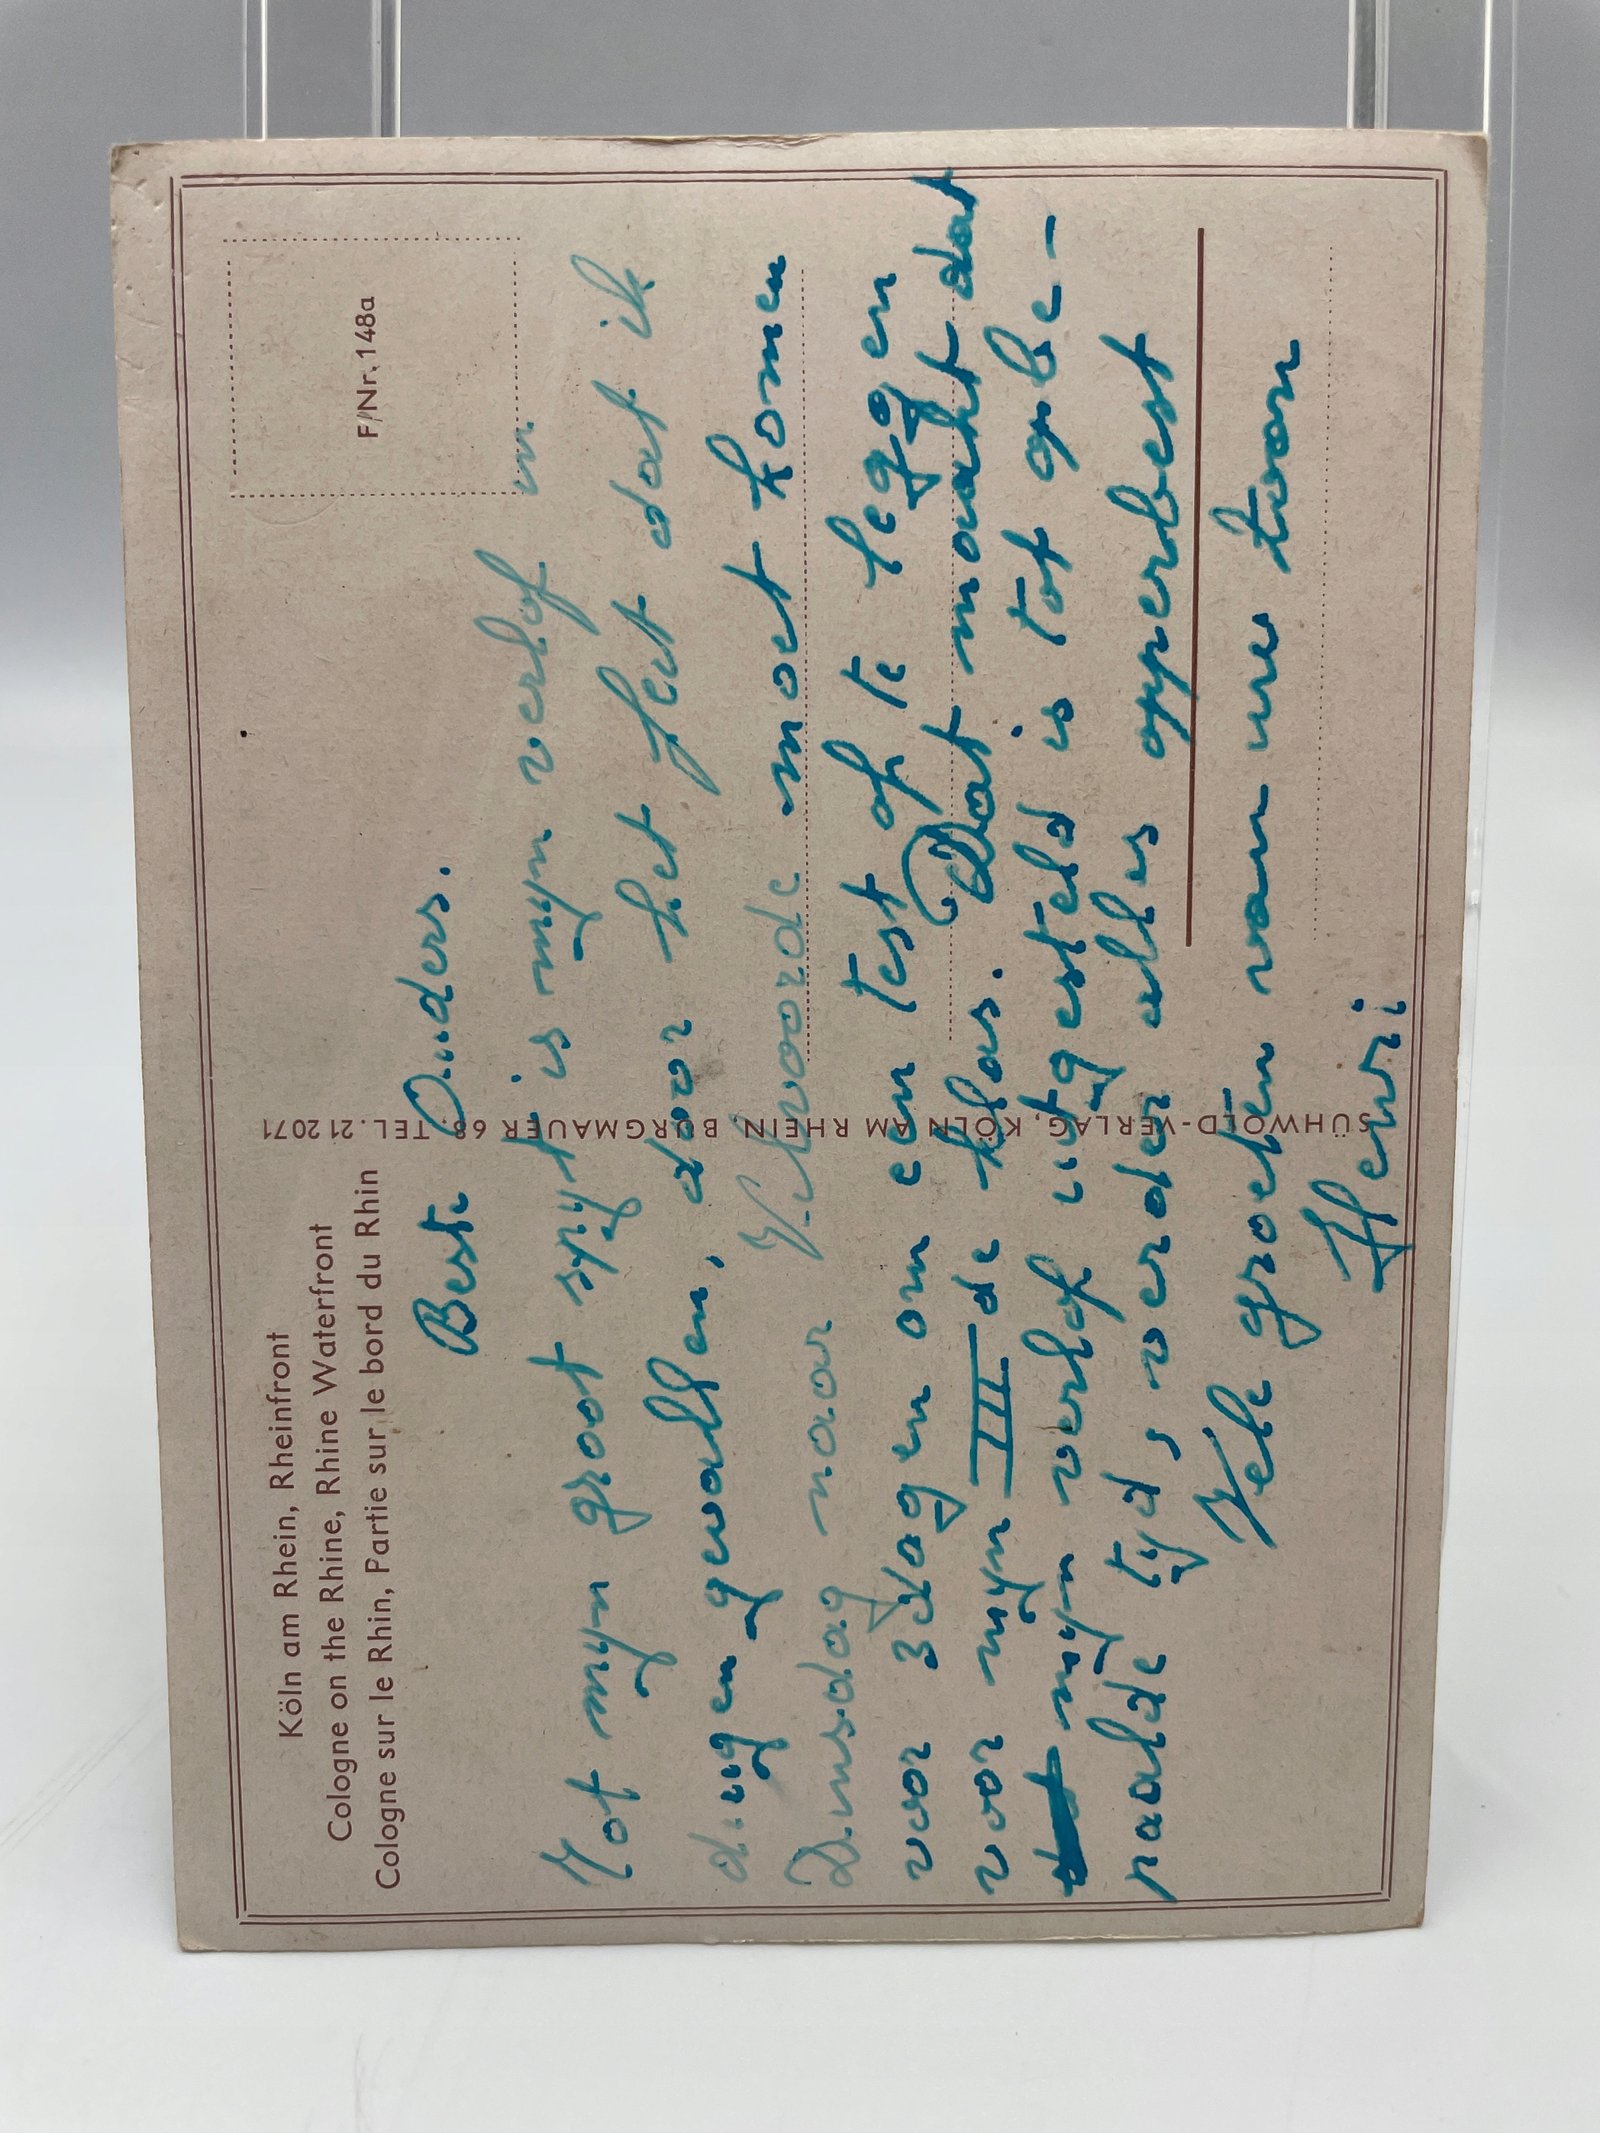 Köln am Rhein, Rheinfront
Cologne on the Rhine, Rhine Waterfront
Cologne sur le Rhin, Partie sur le bord du Rhin
F/Nr. 148a
SÜHWOLD-VERLAG, KÖLN AM RHEIN, BURGMAUER 68, TEL. 21 2071
Beste Ouders.
Tot myn groot spyt is myn verlof in
duigen gevallen, door het feit dat ik
Dinsdag naar Vilvoorde moet komen
voor 3 dagen om een test af te leggen
voor myn III de klas. Dat maakt dat
myn verlof uitgesteld is tot gebe-
paalde tyd, verder alles opperbest
Vele groeten van uw zoon
Henri